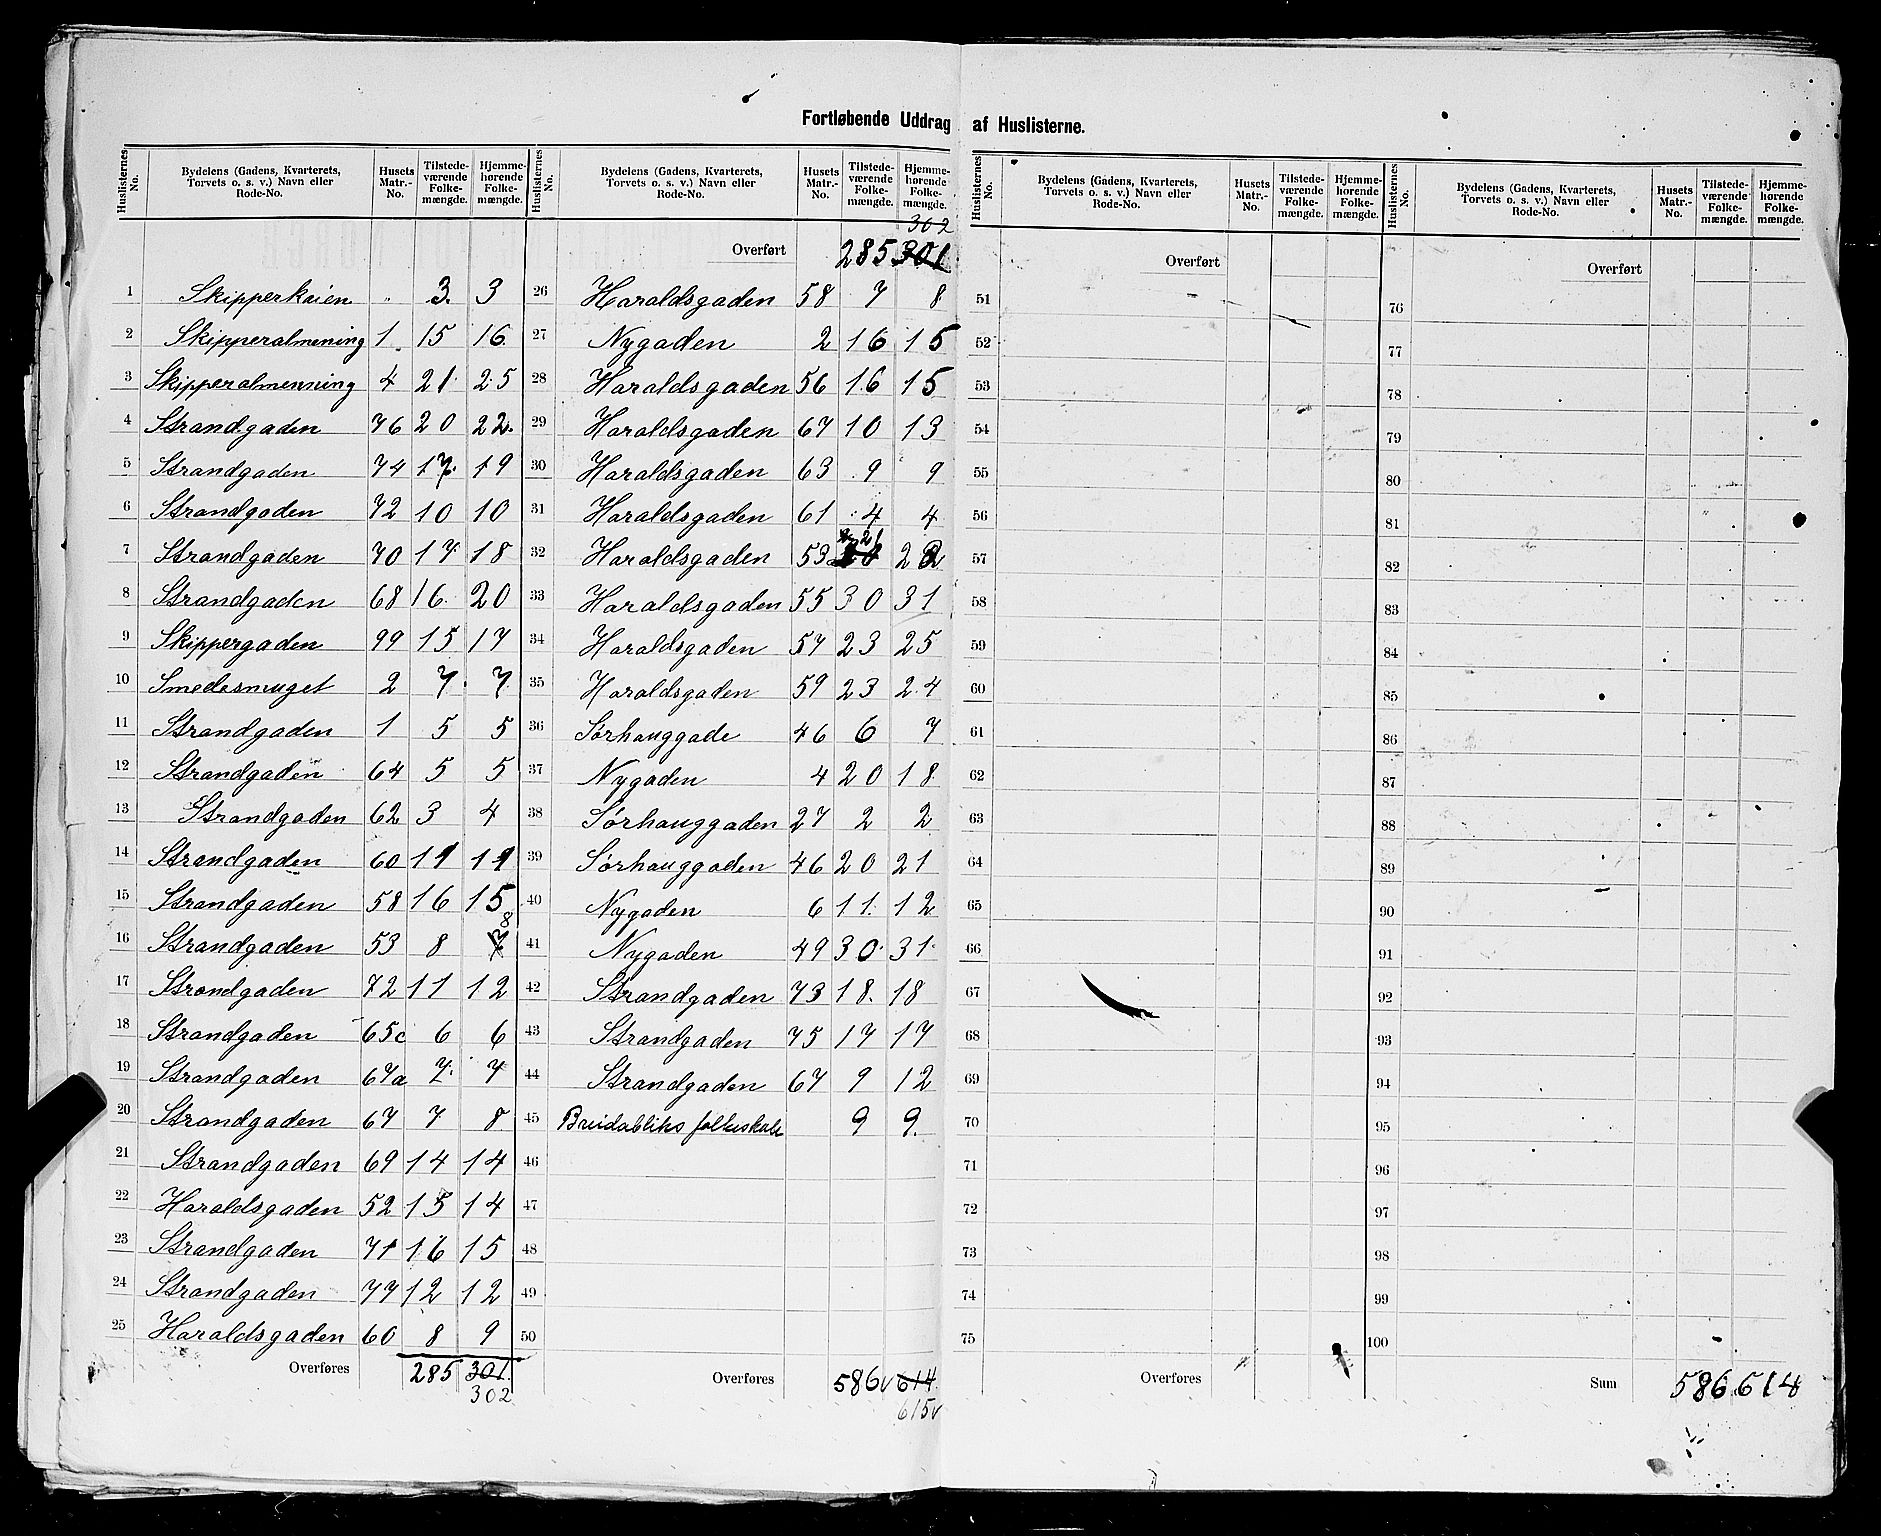 Fortløbende Uddrag af Huslisterne.
Huslisternes No. | Bydelens (Gadens, Kvarterets, Torvets o. s. v.) Navn eller Rode-No. | Husets Matr.-No. | Tilstedeværende Folkemængde. | Hjemmehørende Folkemængde.
1 Skipperkaien " 3 3
2 Skipperalmening 1 15 16
3 Skipperalmenning 4 21 25
4 Strandgaden 76 20 22
5 Strandgaden 74 17 19
6 Strandgaden 72 10 10
7 Strandgaden 70 17 18
8 Strandgaden 68 16 20
9 Skippergaden 99 15 17
10 Smedesmuget 2 7 7
11 Strandgaden 1 5 5
12 Strandgaden 64 5 5
13 Strandgaden 62 3 4
14 Strandgaden 60 11 11
15 Strandgaden 58 16 15
16 Strandgaden 53 8 8
17 Strandgaden 72 11 12
18 Strandgaden 65c 6 6
19 Strandgaden 67a 7 7
20 Strandgaden 67 7 8
21 Strandgaden 69 14 14
22 Haraldsgaden 52 15 14
23 Strandgaden 71 16 15
24 Strandgaden 77 12 12
25 Haraldsgaden 60 8 9
Overføres 285 301
302
Huslisternes No. | Bydelens (Gadens, Kvarterets, Torvets o. s. v.) Navn eller Rode-No. | Husets Matr.-No. | Tilstedeværende Folkemængde. | Hjemmehørende Folkemængde.
302
Overført 285 301
26 Haraldsgaden 58 7 8
27 Nygaden 2 16 15
28 Haraldsgaden 56 16 15
29 Haraldsgaden 67 10 13
30 Haraldsgaden 63 9 9
31 Haraldsgaden 61 4 4
32 Haraldsgaden 53 21 22
33 Haraldsgaden 55 30 31
34 Haraldsgaden 57 23 25
35 Haraldsgaden 59 23 24
36 Sørhauggade 46 6 7
37 Nygaden 4 20 18
38 Sørhauggaden 27 2 2
39 Sørhauggaden 46 20 21
40 Nygaden 6 11 12
41 Nygaden 49 30 31
42 Strandgaden 73 18 18
43 Strandgaden 75 17 17
44 Strandgaden 67 9 12
45 Breidabliks folkeskole 9 9
46
47
48
49
50
Overføres 586 614
615
Huslisternes No. | Bydelens (Gadens, Kvarterets, Torvets o. s. v.) Navn eller Rode-No. | Husets Matr.-No. | Tilstedeværende Folkemængde. | Hjemmehørende Folkemængde.
Overført
51
52
53
54
55
56
57
58
59
60
61
62
63
64
65
66
67
68
69
70
71
72
73
74
75
Overføres
Huslisternes No. | Bydelens (Gadens, Kvarterets, Torvets o. s. v.) Navn eller Rode-No. | Husets Matr.-No. | Tilstedeværende Folkemængde. | Hjemmehørende Folkemængde.
Overført
76
77
78
79
80
81
82
83
84
85
86
87
88
89
90
91
92
93
94
95
96
97
98
99
100
Sum 586 614